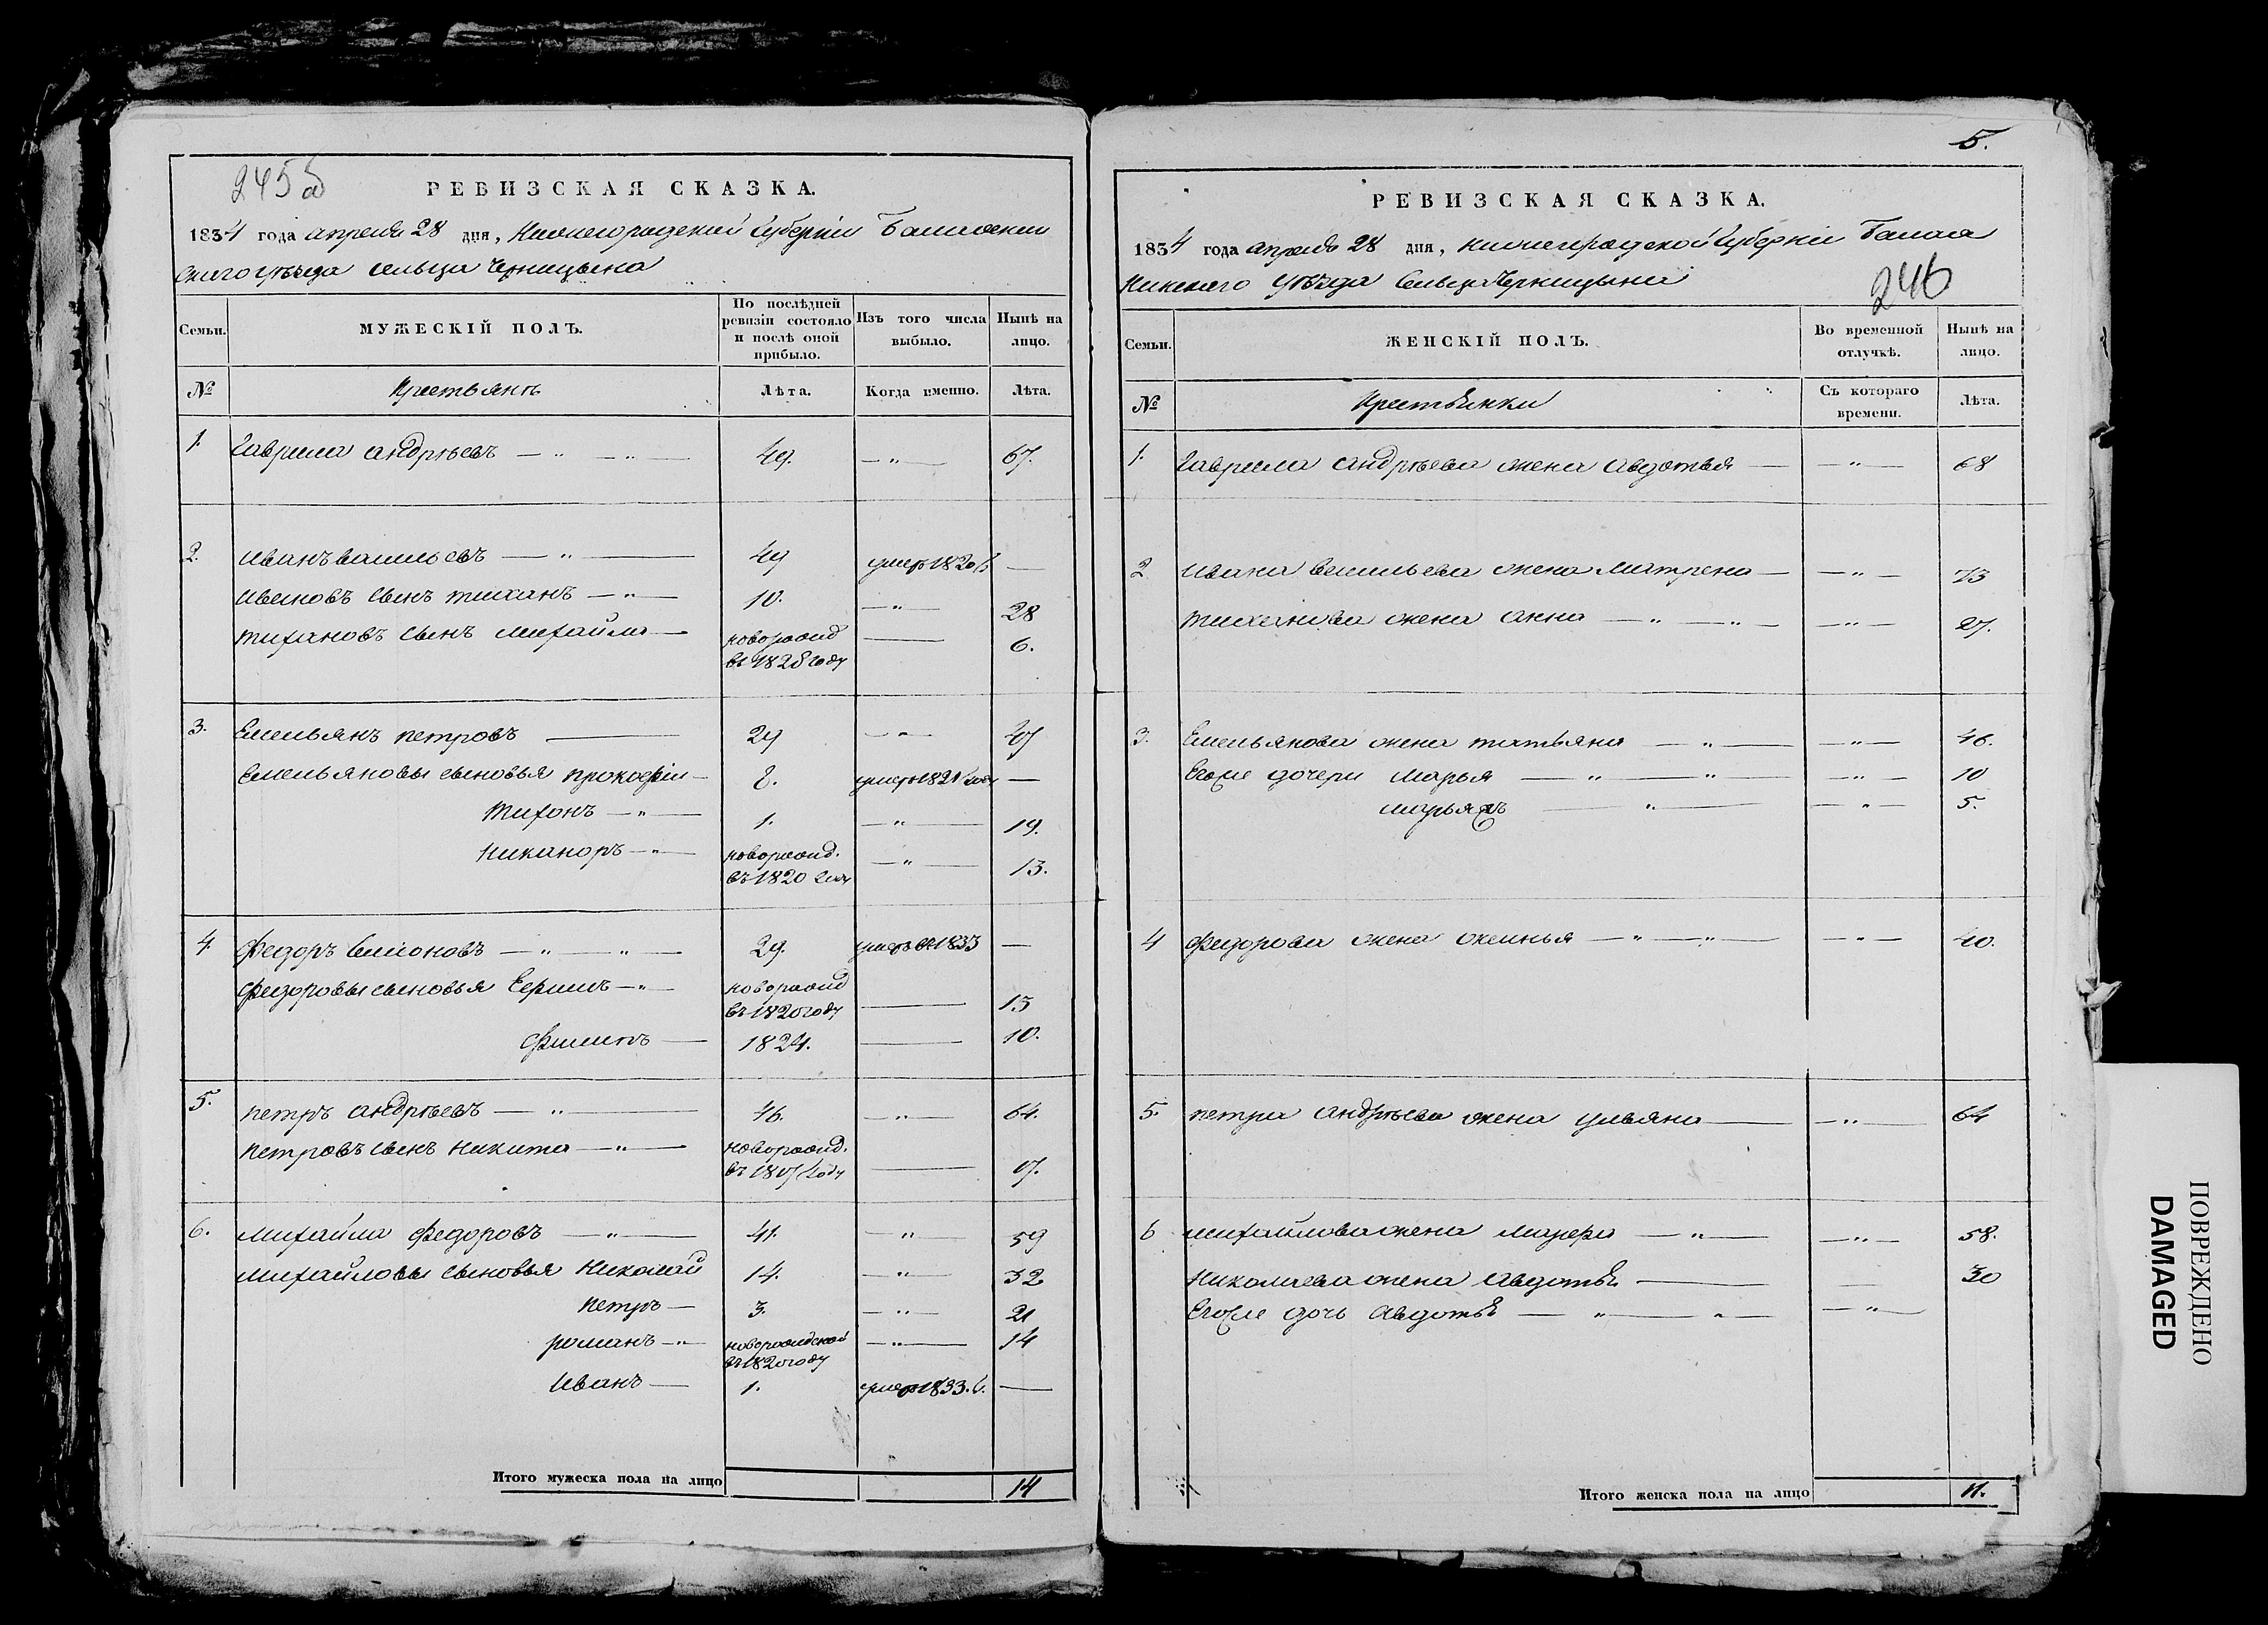 245 об
РЕВИЗСКАЯ СКАЗКА.
1834 года апреля 28 дня, Нижегородской Губерніи Балахнин
скаго уѣзда сельца Черницына
Семьи.
МУЖЕСКІЙ ПОЛЪ.
По послѣдней ревизіи состояло и послѣ оной прибыло.
Изъ того числа выбыло.
Нынѣ на лицо.
№ Крестьянъ Лѣта. Когда именно. Лѣта.
1. Гаврила андрѣевъ — " — " — 49. — " — 67.
2. Иванъ васильевъ — " — 49 умеръ 1820 —
Ивановъ сынъ тиханъ — " — 10. — " — 28
тихановъ сынъ михайла — новорожд — 6.
въ 1828 году
3. Емельянъ петровъ — 29 — " — 47
Емельяновы сыновья прокофіи — 8. умеръ 1821 году —
Тихонъ — " — 1. — " — 19.
Никаноръ — " — новорожд. — " — 13.
въ 1820 году
4. Федоръ Симоновъ — " — " — 29. умеръ въ 1833 —
Федоровы сыновья — " — новорожд — 13
въ 1820 году
Филипъ — 1824. — 10.
5. петръ андрѣевъ — " — 46. — " — 64.
петровъ сынъ никита — " — новорожд. — 17.
въ 1817 году
6. Михайла Федоровъ — " — 41. — " — 59
Михайловы сыновья Николай 14. — " — 32
петръ — 3. — " — 21
романъ — " — новорожденой — " — 14
въ 1820 году
Иванъ — 1. умеръ 1833. —
Итого мужеска пола на лицо 14
5.
РЕВИЗСКАЯ СКАЗКА.
1834 года апреля 28 дня, нижегородской Губерніи Балах
нинскаго Уѣзда Сельца Черницына
246
Семьи.
ЖЕНСКІЙ ПОЛЪ.
Во временной отлучкѣ.
Нынѣ на лицо.
№ Крестьянки Съ котораго времени. Лѣта.
1. Гаврила андрѣева жена авдотья — " — 68
2 Ивана васильева жена матрена — " — 73
тиханова жена анна — " — " — " — 27.
3. Емельянова жена татьяна — " — " — 46.
Егоже дочери марья — " — " — " — 10
— " — " — 5.
4 Федорова жена аксинья — " — " — " — 40.
5. петра андрѣева жена ульяна — " — 64
6 михайлова жена — " — " — 58.
Николаева жена авдотья — 30
Егоже дочь авдотья — " — " — " —
Итого женска пола на лицо 11.
ПОВРЕЖДЕНО
DAMAGED